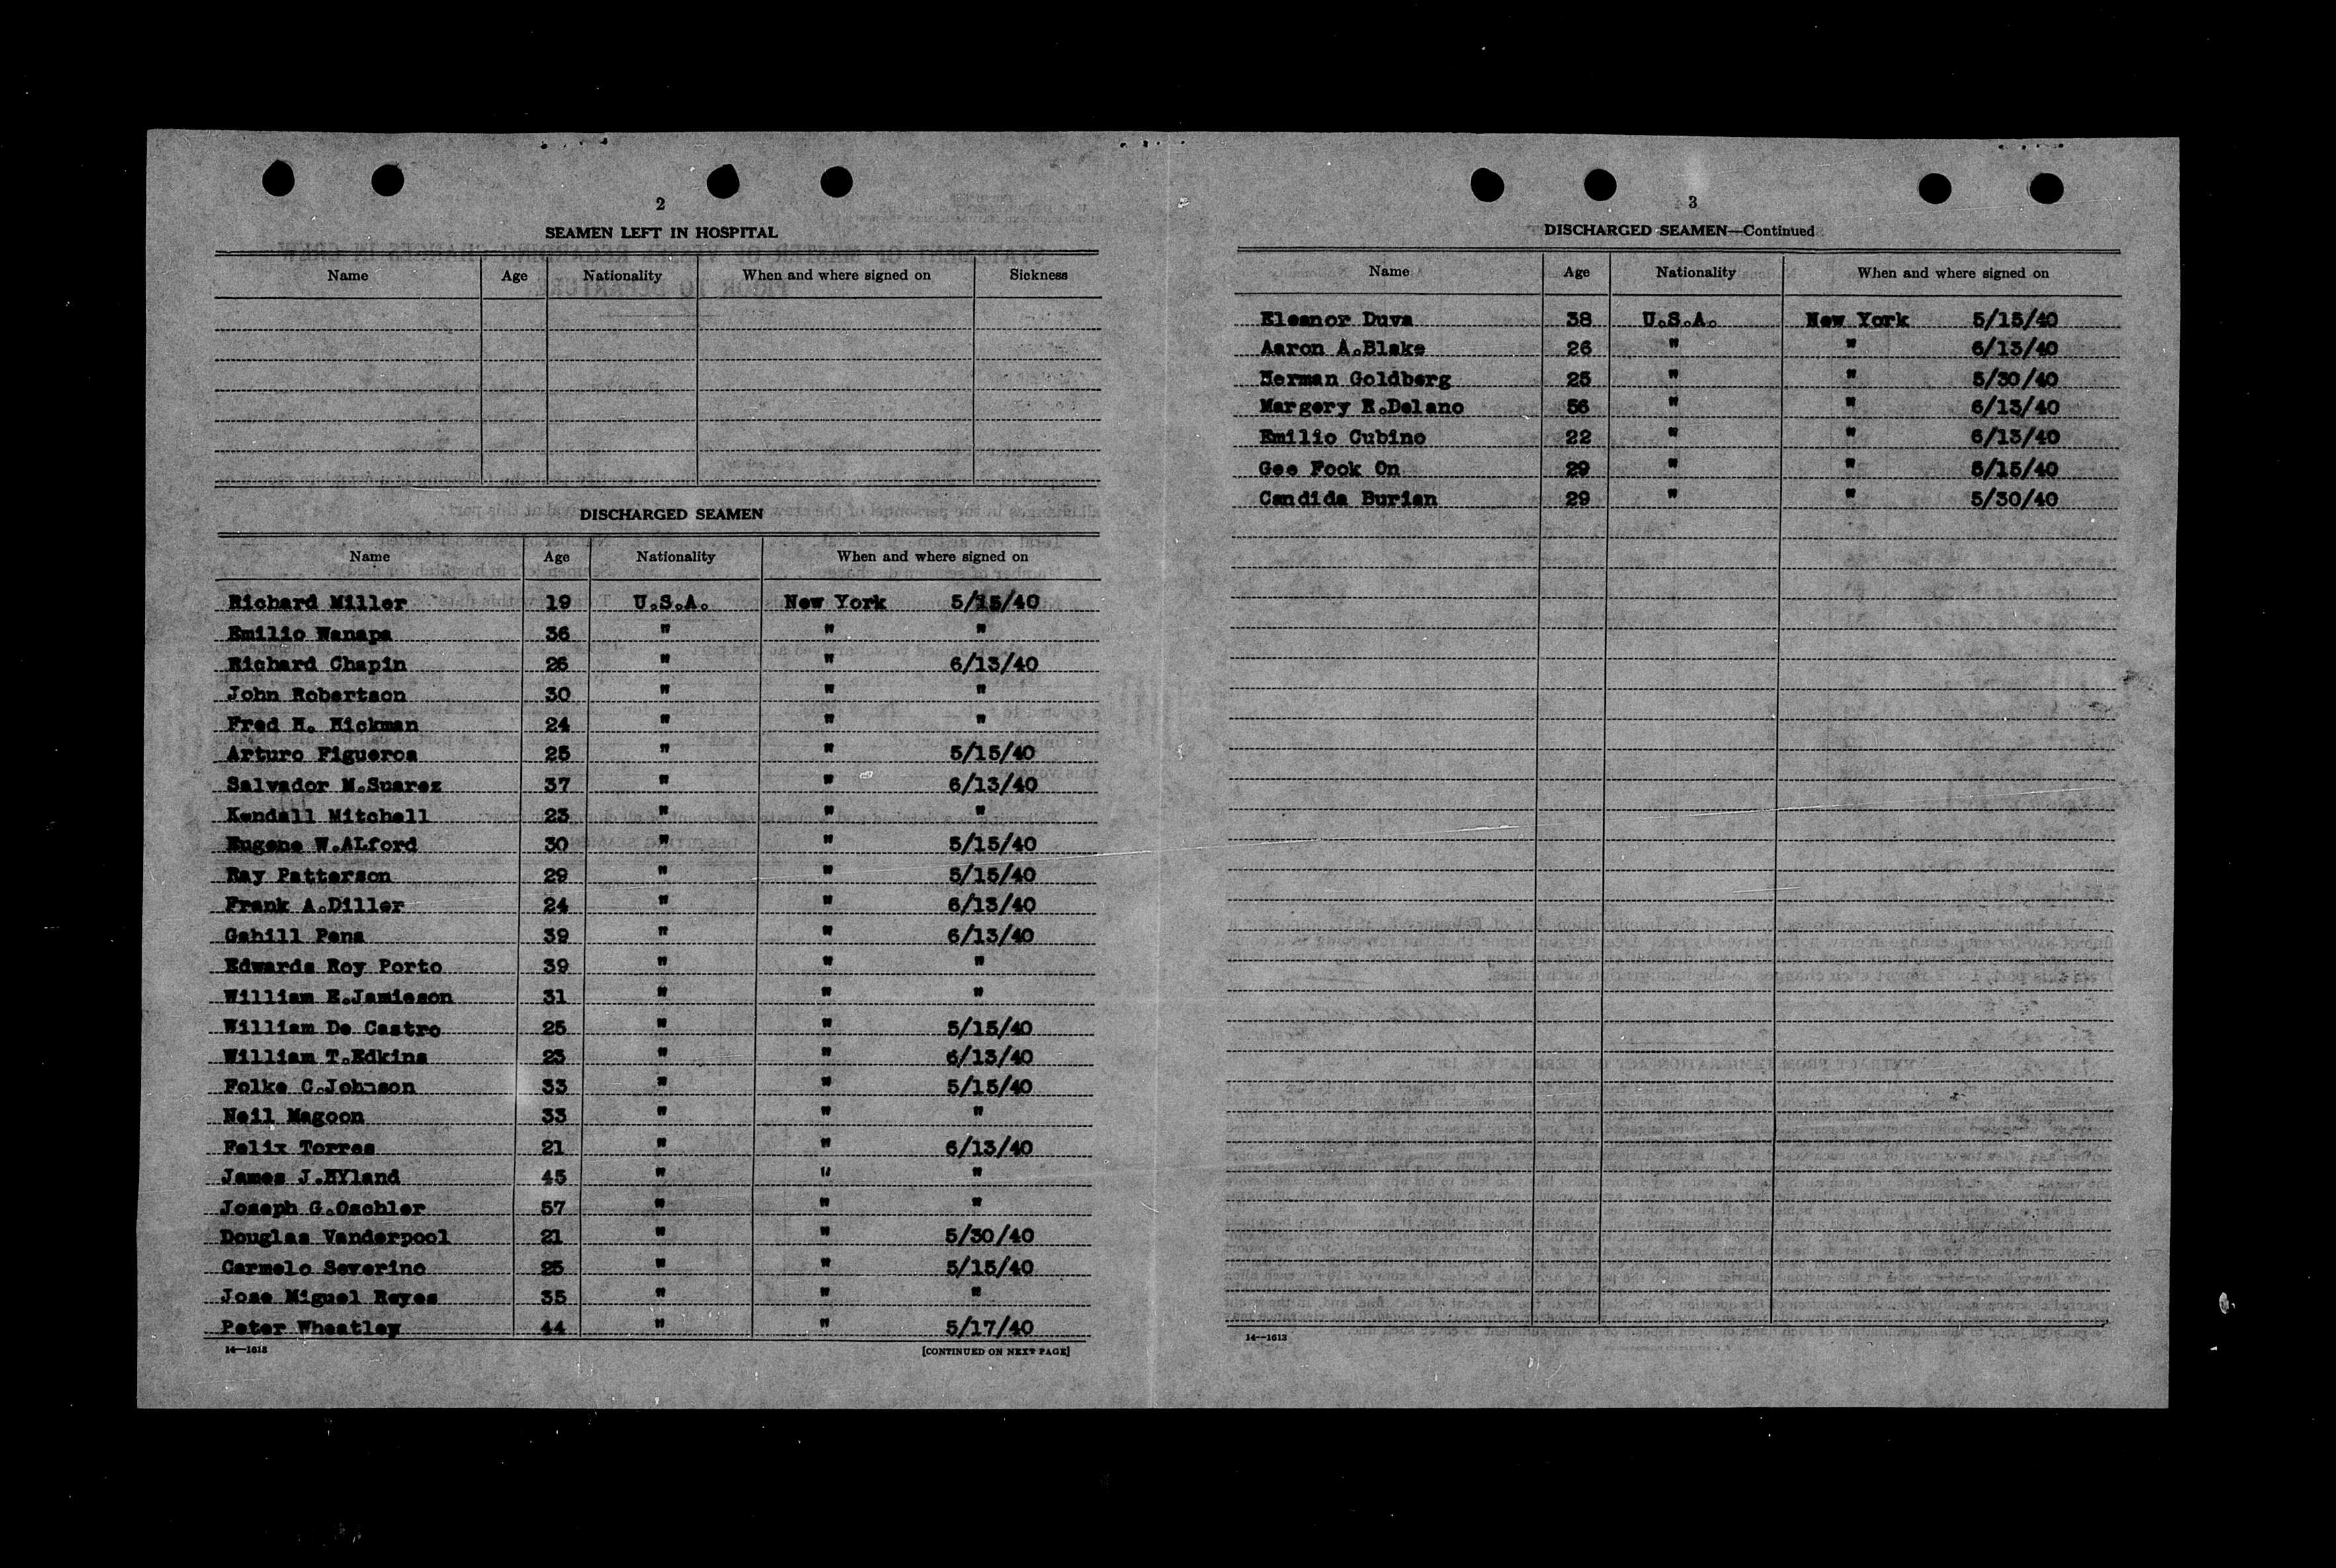 2
SEAMEN LEFT IN HOSPITAL
Name Age Nationality When and where signed on Sickness
DISCHARGED SEAMEN
Name Age Nationality When and where signed on
Richard Miller 19 U.S.A. New York 5/15/40
Emilio Wanapa 36 " " "
Richard Chapin 26 " " 6/13/40
John Robertson 30 " " "
Fred H. Hickman 24 " " "
Arturo Figueroa 25 " " 5/15/40
Salvador M.Suarez 37 " " 6/13/40
Kendall Mitchell 23 " " "
Eugene W.ALford 30 " " 5/15/40
Ray Patterson 29 " " 5/15/40
Frank A.Diller 24 " " 6/13/40
Gahill Pena 39 " " 6/13/40
Edwards Roy Porto 39 " " "
William E.Jamieson 31 " " "
William De Castro 25 " " 5/15/40
William T.Edkins 23 " " 6/13/40
Folke C.Johnson 33 " " 5/15/40
Neil Magoon 33 " " "
Felix Torres 21 " " 6/13/40
James J.HYland 45 " " "
Joseph G.Oschler 57 " " "
Douglas Vanderpool 21 " " 5/30/40
Carmelo Severino 25 " " 5/15/40
Jose Miguel Reyes 35 " " "
Peter Wheatley 44 " " 5/17/40
14—1613 [CONTINUED ON NEXT PAGE]
3
DISCHARGED SEAMEN—Continued
Name Age Nationality When and where signed on
Eleanor Duva 38 U.S.A. New York 5/15/40
Aaron A.Blake 26 " " 6/13/40
Herman Goldberg 25 " " 5/30/40
Margery E.Delano 56 " " 6/13/40
Emilio Cubino 22 " " 6/13/40
Gee Fook On 29 " " 5/15/40
Candida Burian 29 " " 5/30/40
14—1613